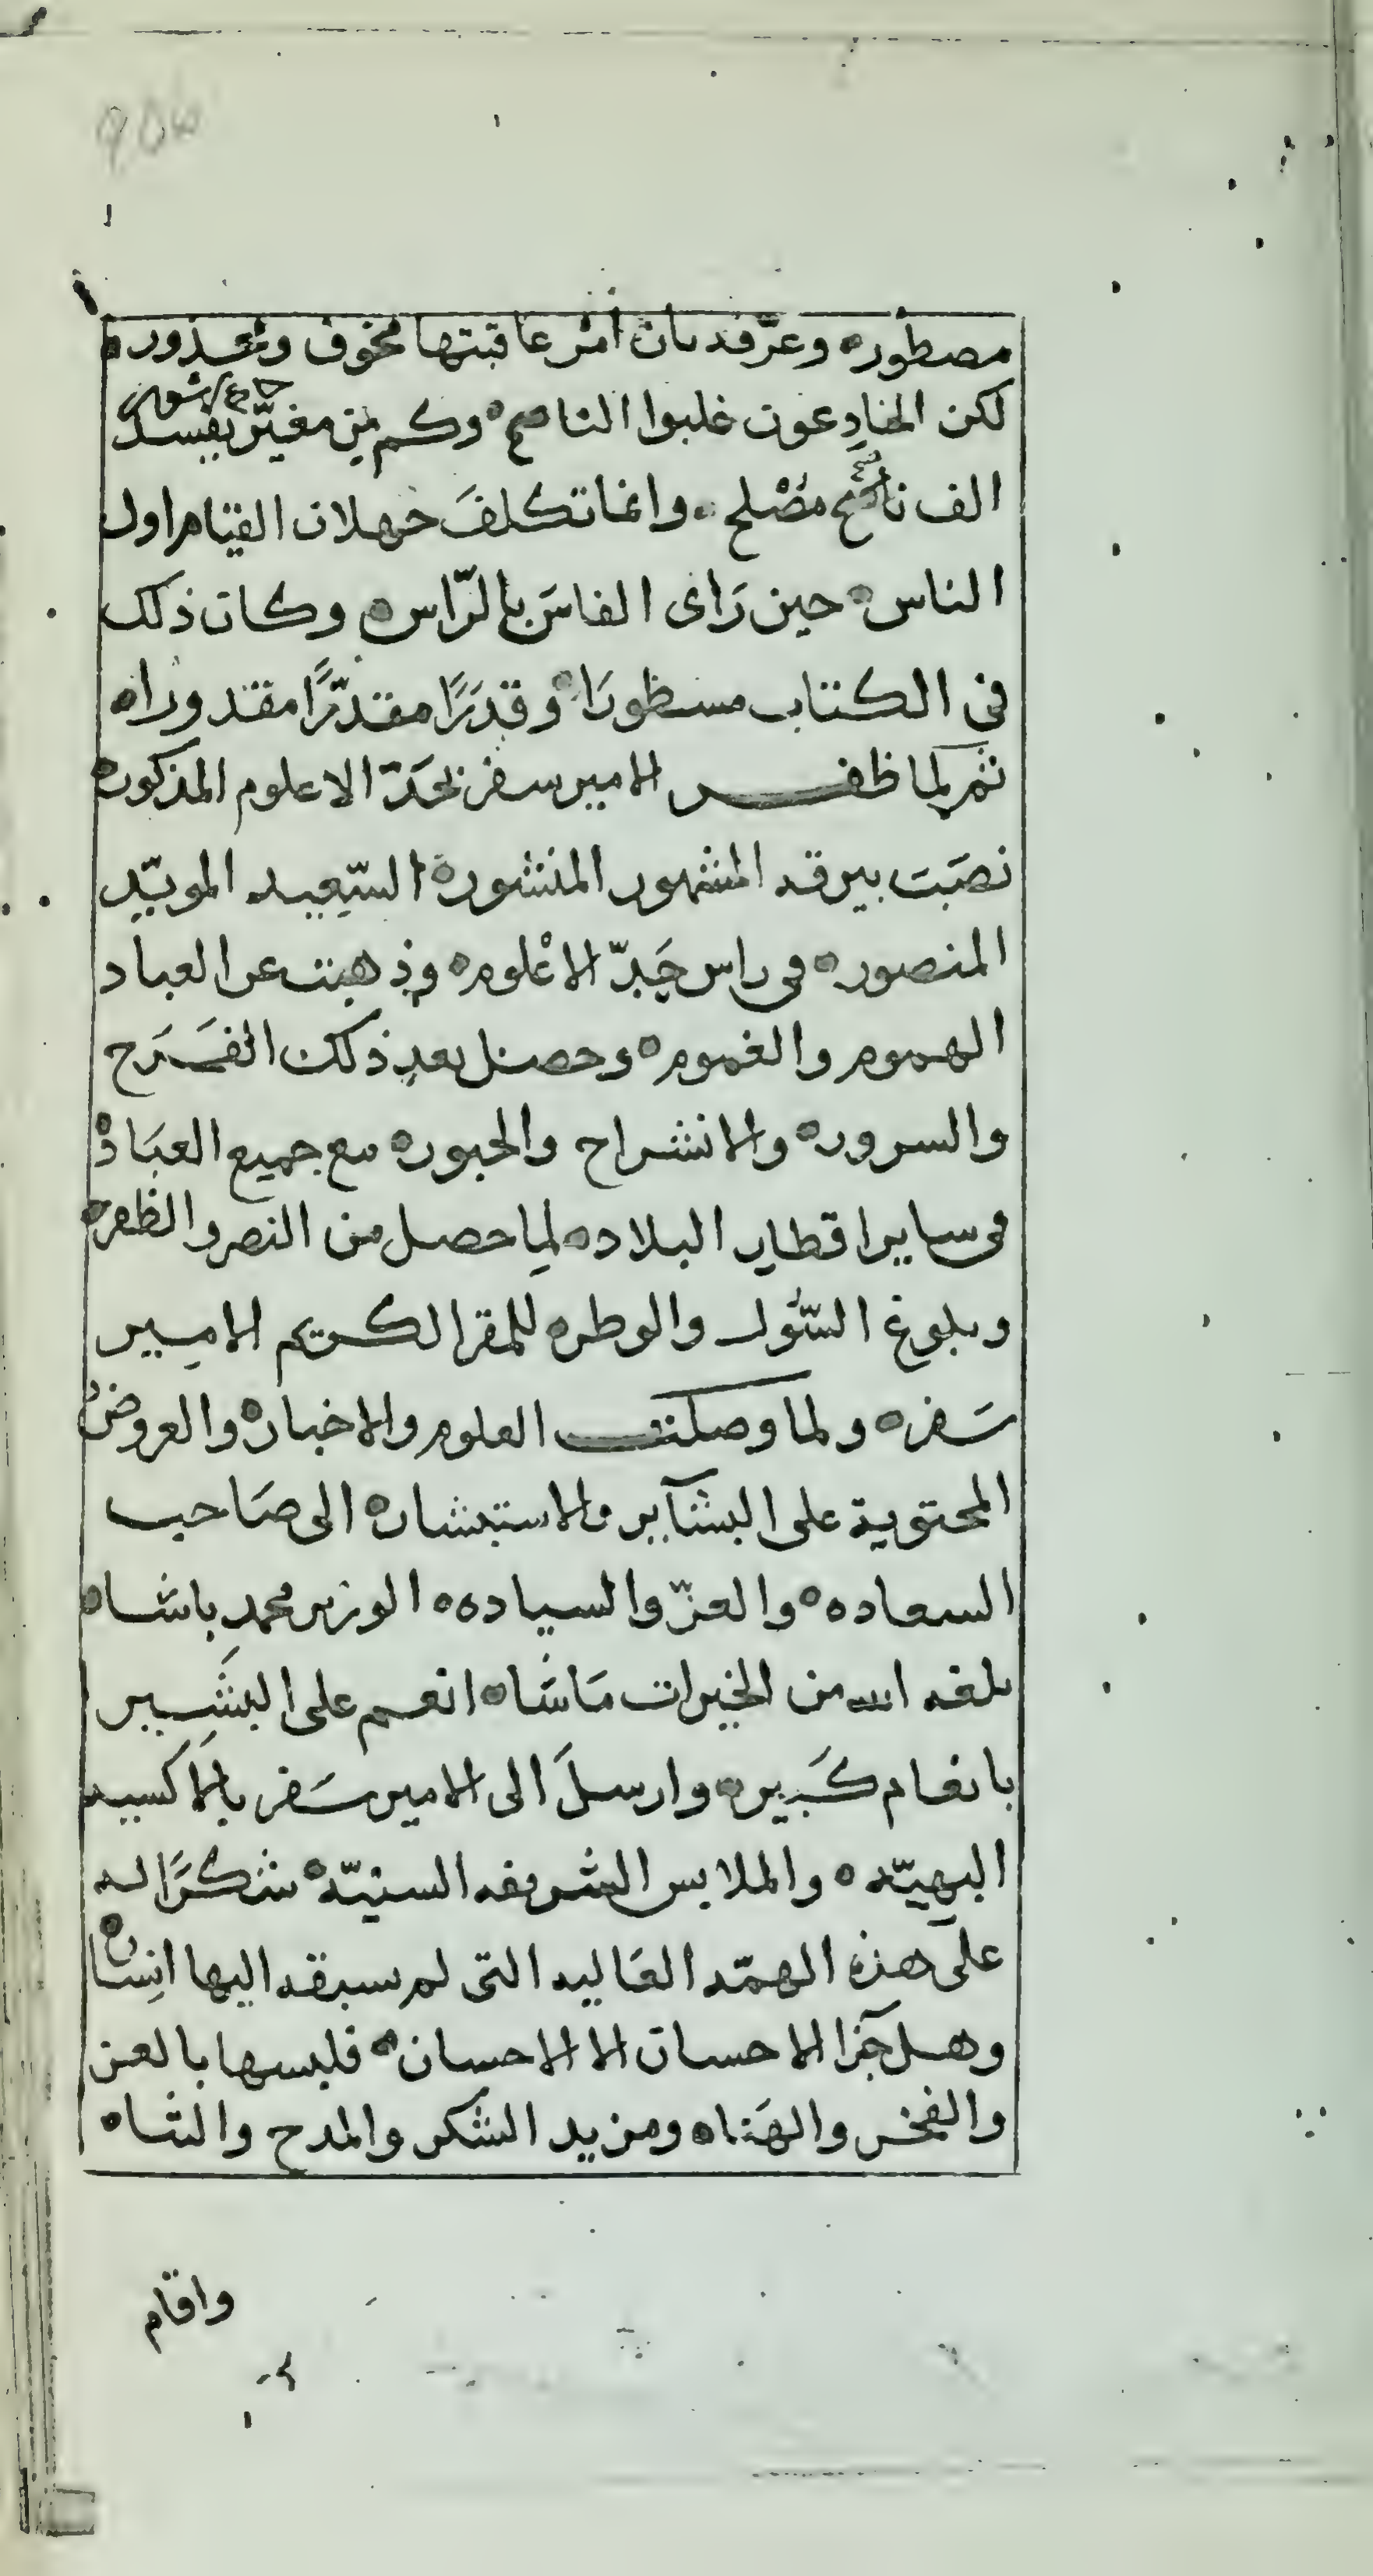 مصطوره وعرّفه بان امر عاقبتها مخوف ومحذوره
لكن المخادعون غلبوا الناصح ٥ وكم مِن مغيّر يفسد
الف ناصح مصْلح ٥ وانما تكلفَ جهلان القيام اول
الناس ٥ حين رَاى الفاسَ بالرّاس ٥ وكان ذلك
فى الكتاب مسطورَا ٥ وقدَرًا مقدّرًا مقدورا ٥
ثم لما ظفر الامير سفر بحَدّ الاعلوم المذكوره
نصبَت بيرقه المشهور المنشوره السّعِيد المويّد
المنصوره فى راس حَيدّ الاعْلوم ٥ وذهبت عن العباد
الهموم والغموم ٥ وحصل بعد ذلك الفَرَح
والسرور ٥ والانشراح والحبور ٥ مع جميع العبَاد
فى ساير اقطار البلاد ٥ لِما حصل من النصر والظفر ٥
وبلوغ السّول والوطر ٥ للمقر الكريم الامير
سَفر ٥ ولما وصلت العلوم والاخبار ٥ والعروض
المحتوية على البشآير والاستبشار ٥ الى صَاحب
السعاده ٥ والعزّ والسياده ٥ الوزير محمد باشا ٥
بلغه الله من الخيرات مَاشَا ٥ انعم على البشِير
بانعام كَبير ٥ وارسلَ الى الامير سَفر بالاكسيه
البهِيّه ٥ والملابس الشريفه السنيّة ٥ شكرًا له
على هذه الهمّه العَاليه التى لم سبقه اليها انسان ٥
وهل جَزا الاحسان الا الاحسان ٥ فلبسها بالعز
والفخر والهَنا ٥ ومزيد الشكر والمدح والثنا ٥
واقام